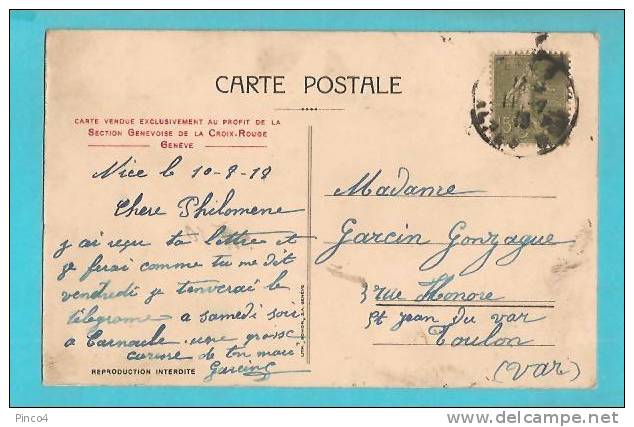 CARTE POSTALE
CARTE VENDUE EXCLUSIVEMENT AU PROFIT DE LA
SECTION GENEVOISE DE LA CROIX-ROUGE
GENÈVE
Nice le 10-8-18
Chere Philomene
j ai reçu ta lettre et
je ferai comme tu me dit
vendredi je t'enverai le
télegrame a samedi soir
a une grosse
de ton mari
Garcin G
REPRODUCTION INTERDITE
Madame
Garcin Gonzague
3 rue Honore
St jean du var
Toulon
(Var)
15
Pinco4
delcampe.net